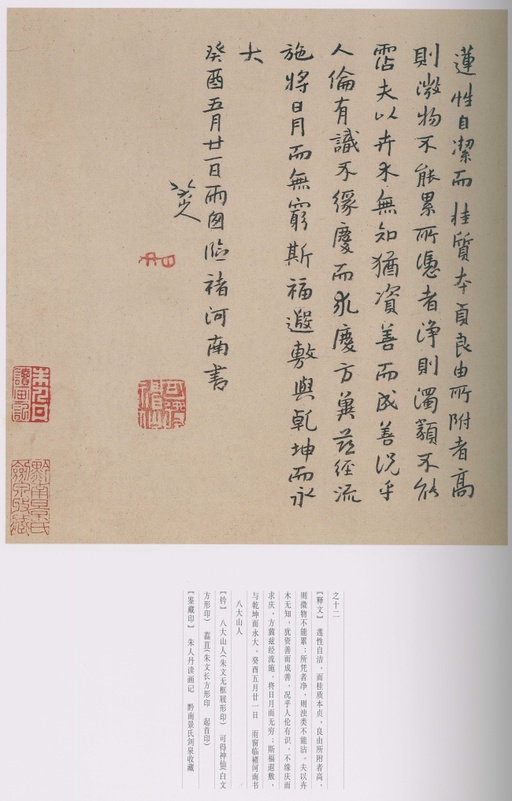 蓮性自潔而桂質本貞良由所附者高
則微物不能累所憑者淨則濁類不能
霑夫以卉木無知猶資善而成善況乎
人倫有識不緣慶而求慶方冀茲經流
施將日月而無窮斯福遐敷與乾坤而永
大
癸酉五月廿一日雨囱臨褚河南書
八大山人
之十二
【释文】 莲性自洁，而桂质本贞。良由所附者高，
则微物不能累；所凭者净，则浊类不能沾。夫以卉
木无知，犹资善而成善，况乎人伦有识，不缘庆而
求庆。方冀兹经流施，将日月而无穷；斯福遐敷，
与乾坤而永大。癸酉五月廿一日 雨窗临褚河南书
八大山人
【钤】 八大山人(朱文无框屐形印) 可得神仙(白文
方形印) (朱文长方形印 起首印)
【鉴藏印】 朱人丹读画记 黔南景氏剑泉收藏